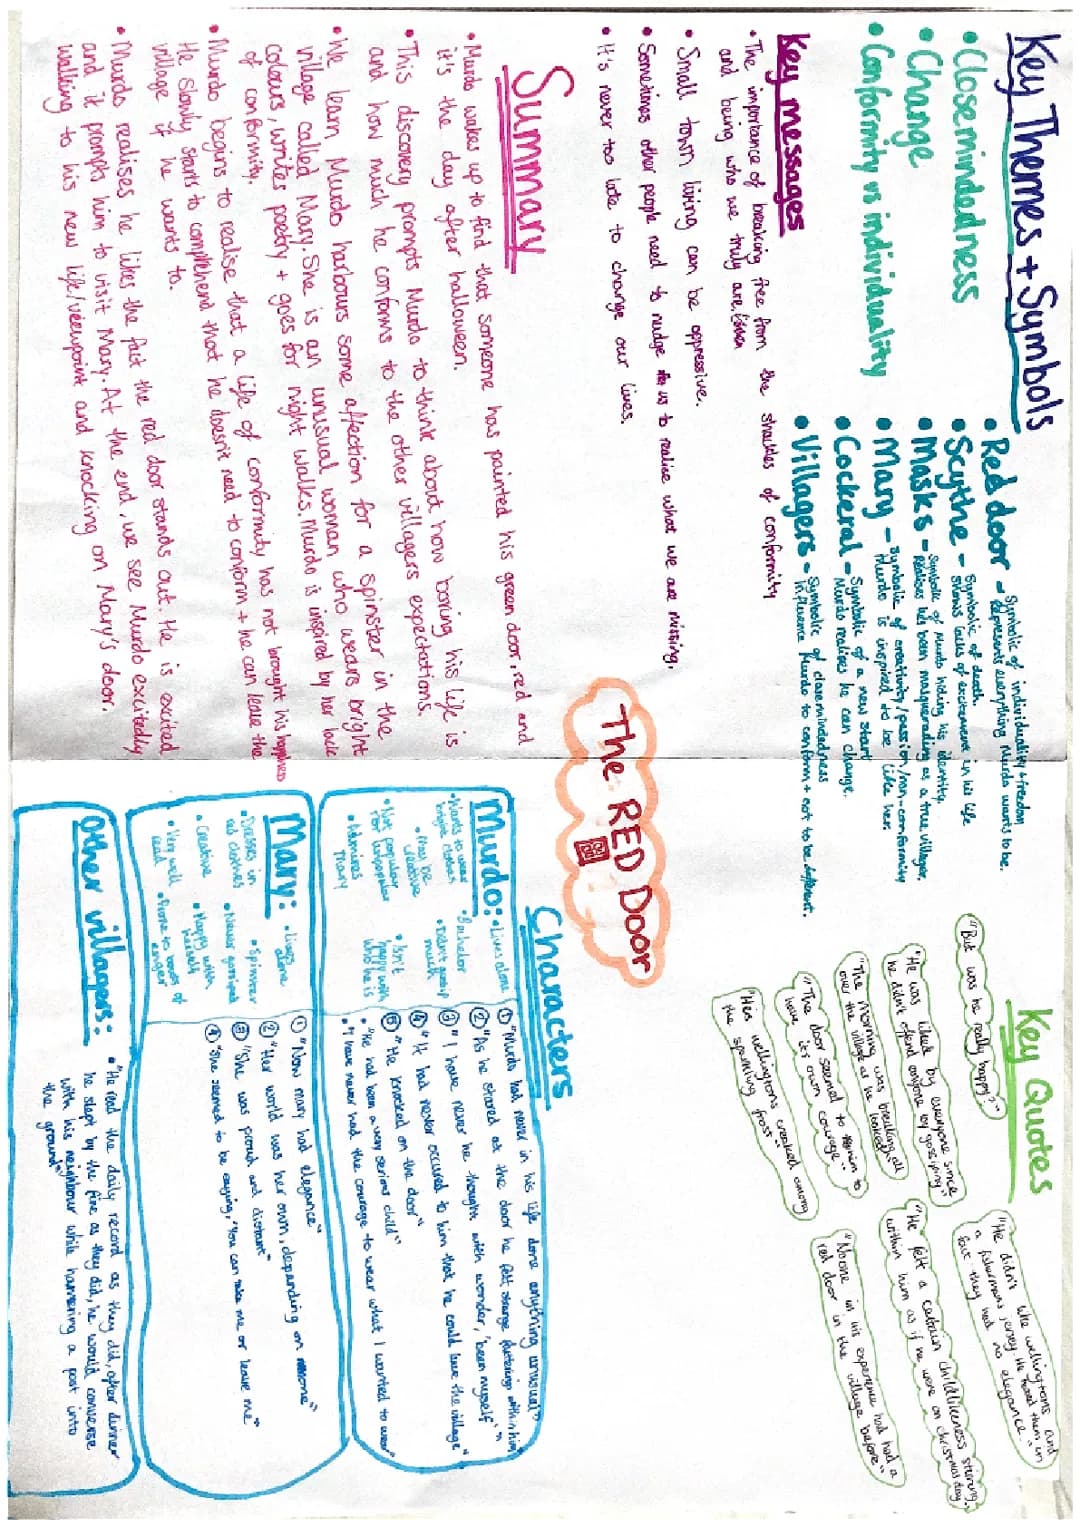 Key Themes + Symbols
• Closemindedness
• Change
• Conformity vs individuality
• Red door - Symbolic of individuality + freedom
Represents everything Murdo wants to be.
• Scythe - Symbolic of death.
Shows lack of excitement in his life
• Masks - Symbolic of Murdo hiding his identity.
Realises he's been masquerading as a true villager.
• Mary - Symbolic of creativity/passion/non-conformity
Murdo is inspired to be like her.
• Cockeral - Symbolic of a new start
Murdo realises he can change.
• Villagers - Symbolic of closemindedness
Influence Murdo to conform + not to be different.
Key messages
• The importance of breaking free from the shackles of conformity
and being who we truly are.
• Small town living can be oppressive.
• Sometimes other people need to nudge us to realise what we are missing.
• It's never too late to change our lives.
Summary
• Murdo wakes up to find that someone has painted his green door red and
it's the day after halloween.
• This discovery prompts Murdo to think about how boring his life is
and how much he conforms to the other villagers expectations.
• We learn Murdo harbours some affection for a spinster in the
village called Mary. She is an unusual woman who wears bright
colours, writes poetry + goes for night walks. Murdo is inspired by her lack
of conformity.
• Murdo begins to realise that a life of conformity has not brought his happiness
He slowly starts to comprehend that he doesn't need to conform + he can leave the
village if he wants to.
• Murdo realises he likes the fact the red door stands out. He is excited
and it prompts him to visit Mary. At the end, we see Murdo excitedly
walking to his new life/viewpoint and knocking on Mary's door.
The RED Door
Key Quotes
"But was he really happy?"
"He was liked by everyone since
he didn't offend anyone by gossiping"
"The morning was breaking all
over the village as he looked"
"The door seemed to have its own courage"
"His wellingtons creaked among
the sparkling frost"
"He didn't like wellingtons and
a fisherman's jersey. He hated them in
fact they had no elegance"
"He felt a certain childlikeness stirring
within him as if he were on christmas day"
"No one in his experience had had a
red door in the village before"
Characters
Murdo:
• Lives alone
• Wants to wear
bright clothes
• Bachelor
• May be
creative
• Didn't gossip
much
• Not
popular
nor unpopular
• Isn't
happy with
who he is
• Admires
Mary
① "Murdo had never in his life done anything unusual"
② "As he stared at the door he felt strange flutterings within him"
③ "I have never he thought with wonder, 'been myself'"
④ "It had never occured to him that he could leave the village"
⑤ "He knocked on the door"
• "He had been a very serious child"
• "I have never had the courage to wear what I wanted to wear"
Mary:
• Lives
alone
• Dresses in
red clothes
• Spinster
• Never gossiped
• Creative
• Happy with
herself
• Very well
read
• Prone to bouts of
anger
① "Now mary had elegance"
② "Her world was her own, depending on none"
③ "She was proud and distant"
④ "She seemed to be saying, 'You can take me or leave me"
Other villagers:
• "He read the daily record as they did, after dinner
he slept by the fire as they did, he would converse
with his neighbour while hammering a post into
the ground"